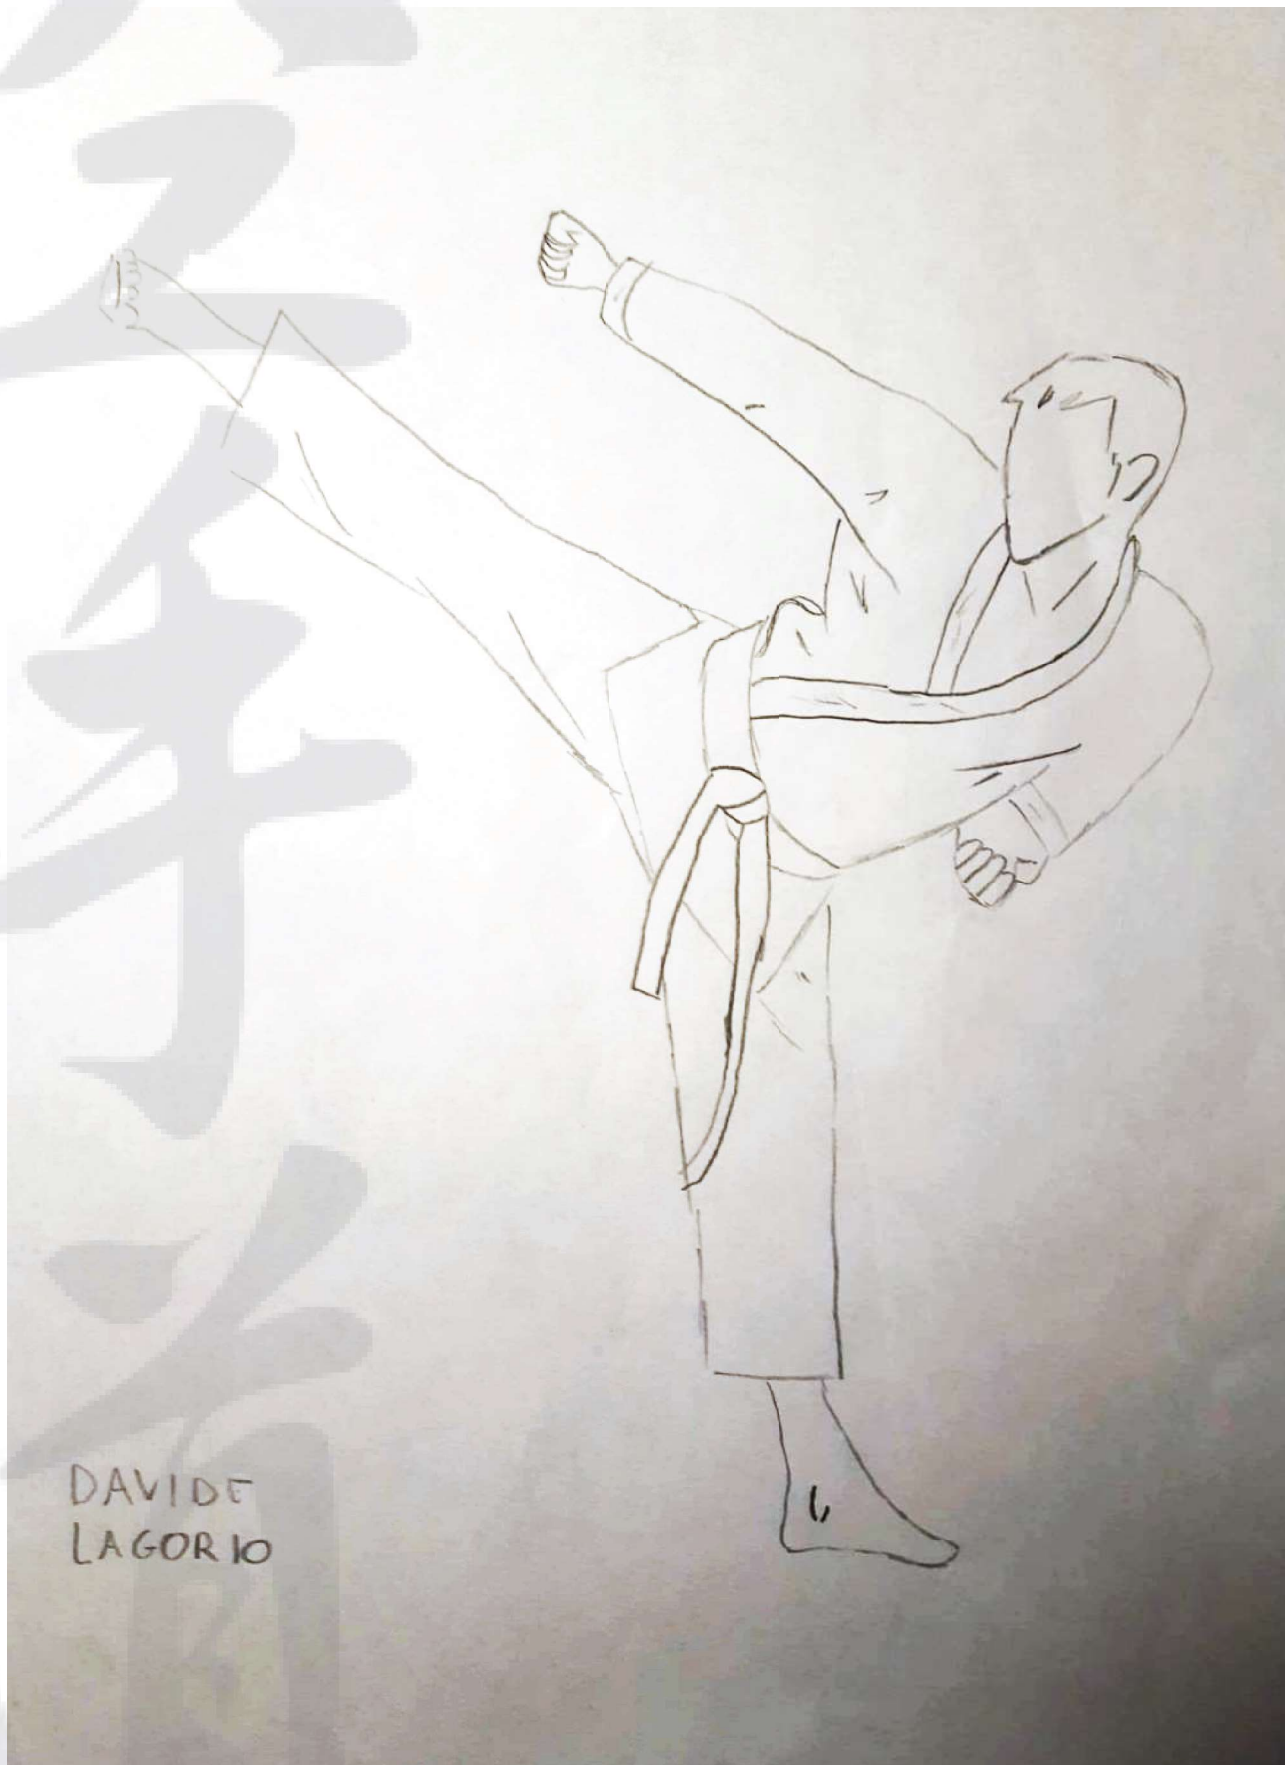 空
手
道
DAVIDE
LAGORIO